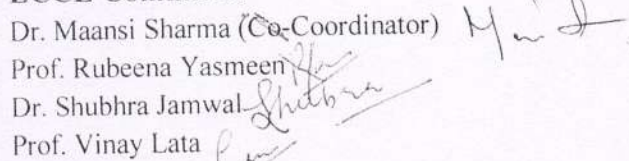 Dr. Maansi Sharma (Co-Coordinator)
Prof. Rubeena Yasmeen
Dr. Shubhra Jamwal Shubhra
Prof. Vinay Lata